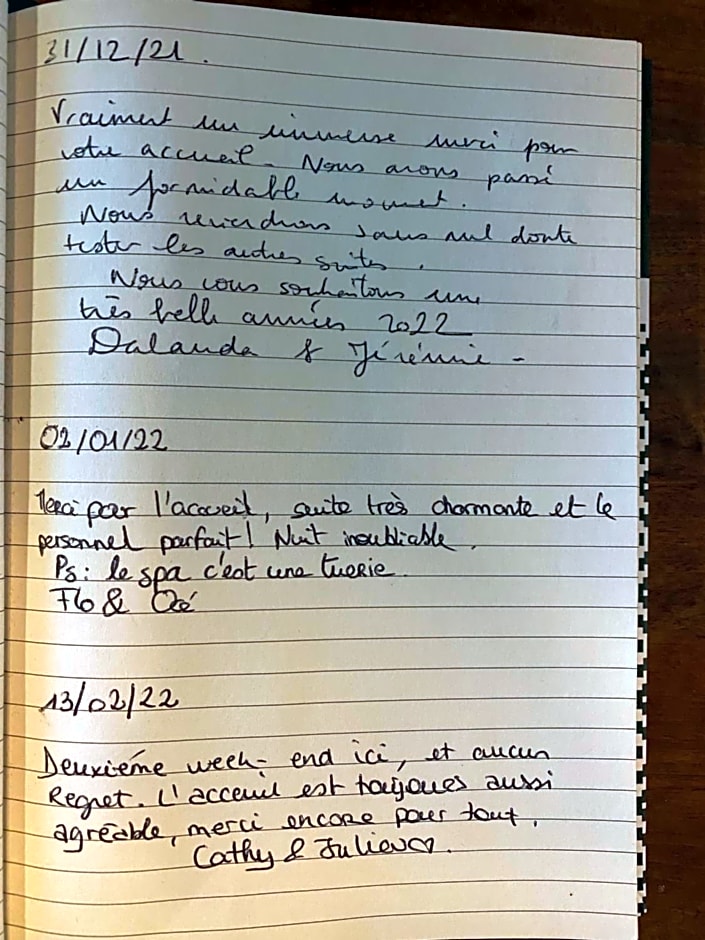 31/12/21.
Vraiment un immense merci pour
votre accueil. Nous avons passé
un formidable moment.
Nous reviendrons sans nul doute
tester les autres suites.
Nous vous souhaitons une
très belle années 2022
Dalanda & Jérémie -
02/01/22
Merci pour l'accueil, suite très charmante et le
personnel parfait! Nuit inoubliable.
Ps: le spa c'est une tuerie.
Flo & Océ
13/02/22
Deuxième week-end ici, et aucun
Regret. L'acceuil est toujours aussi
agréable, merci encore pour tout.
Cathy & Julien ♡.